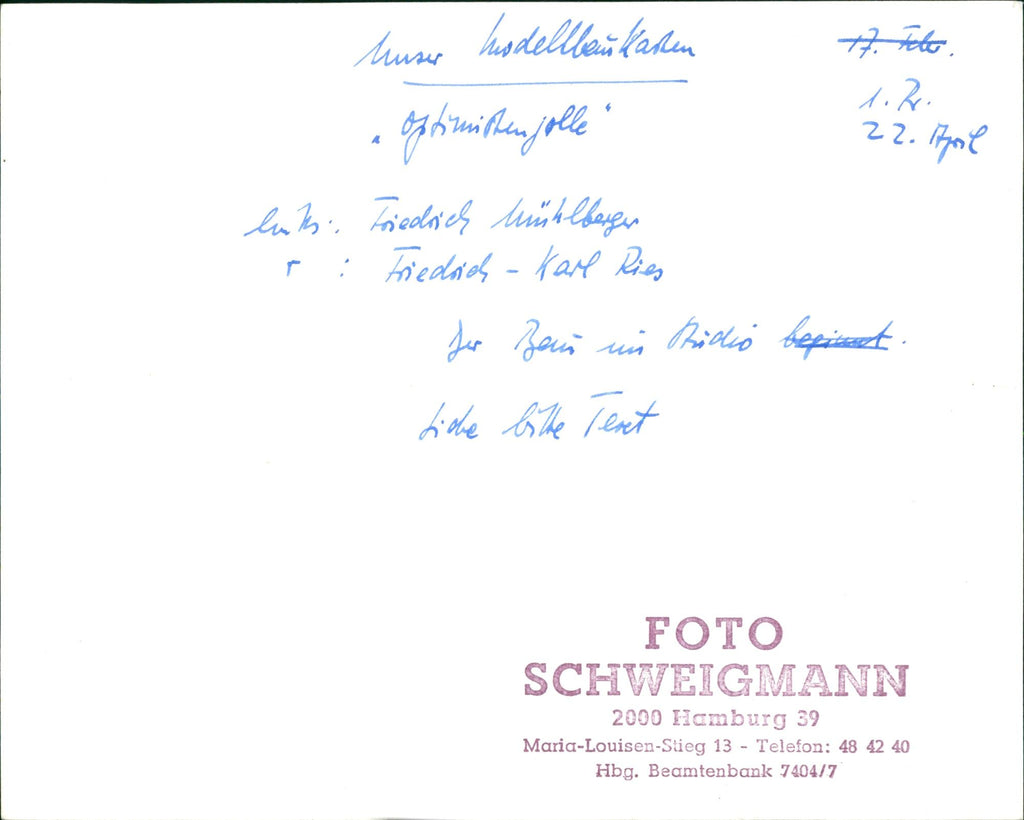 Unser Modellbaukasten
17. Febr.
"Optimistenjolle"
1. Pr.
22. April
links: Friedrich Mühlberger
r : Friedrich-Karl Ries
Der Bau im Studio beginnt.
Siehe bitte Text
FOTO
SCHWEIGMANN
2000 Hamburg 39
Maria-Louisen-Stieg 13 - Telefon: 48 42 40
Hbg. Beamtenbank 7404/7